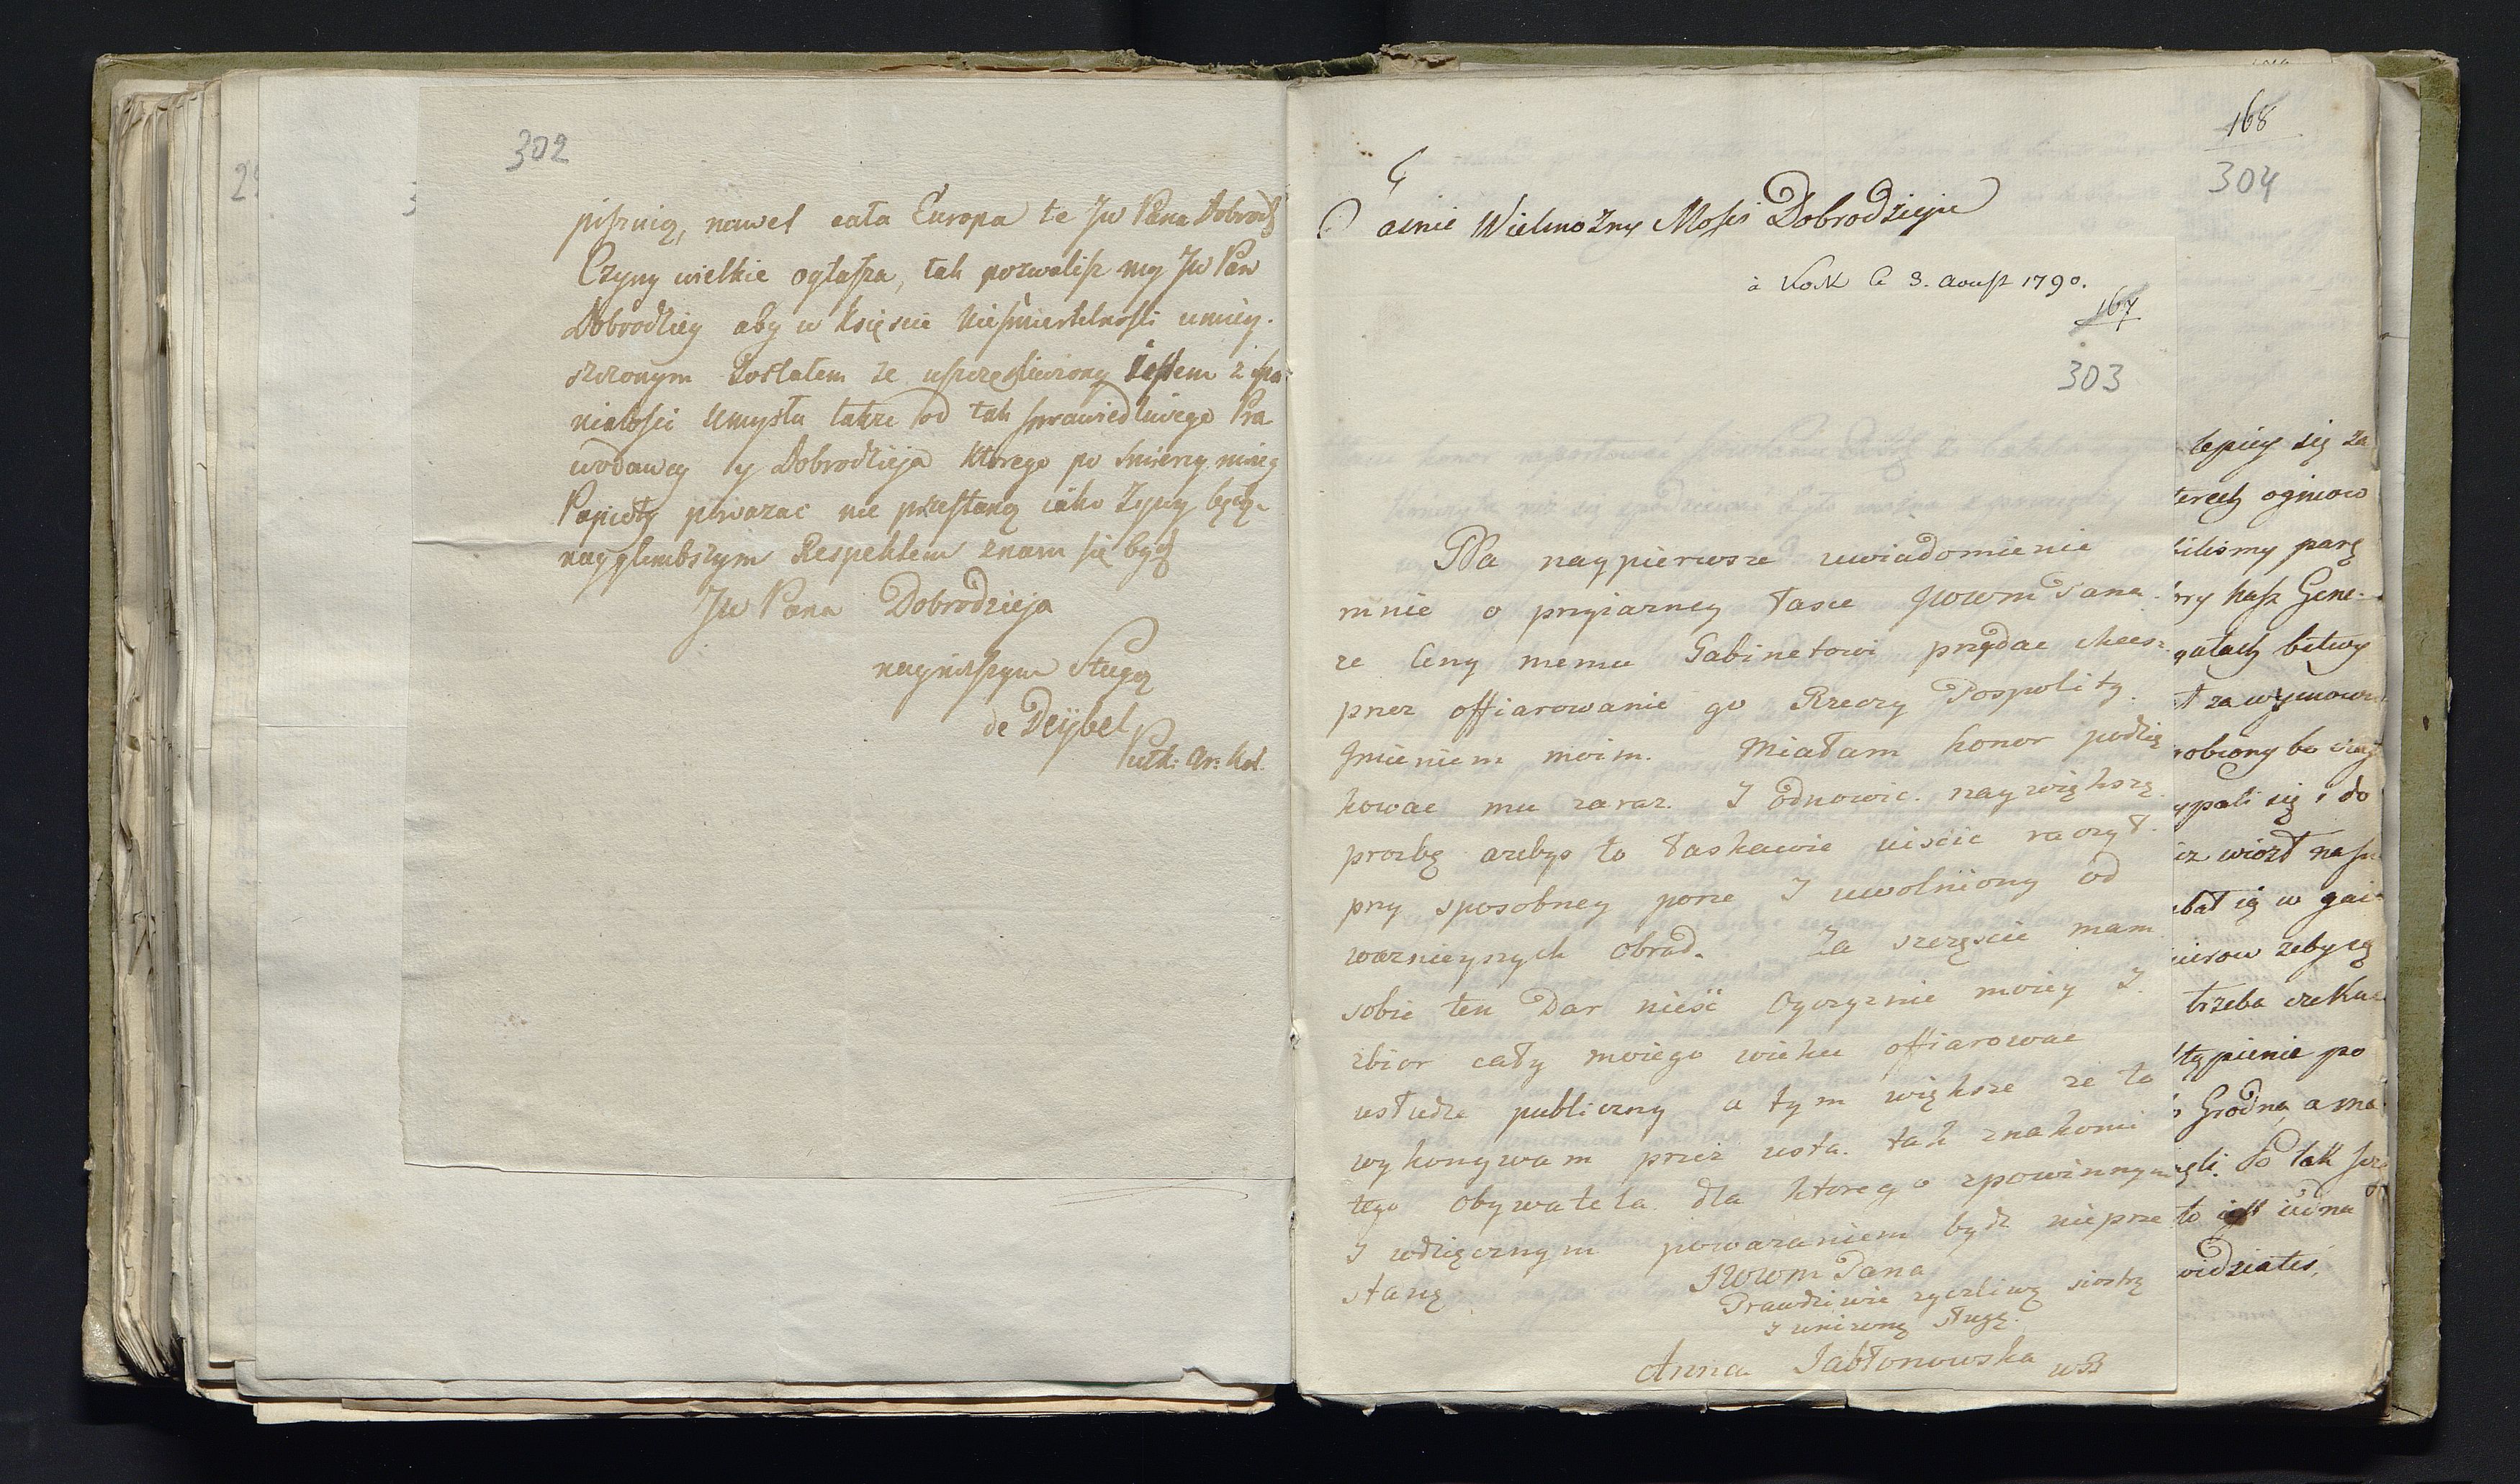 302
piſznią, nawet cała Europa te JW Pana Dobrodz
Czyny wielkie ogłaſza, tak pozwoliſz my JW Pan
Dobrodziey aby w Xięscie Nieſmiertelnoſti umiey-
szczonym Zostałem ze uſzczęśliwiony Jeſtem z ſpa-
niałoſci Umysłu także od tak ſprawiedliwego Pra
wodawcy y Dobrodzieja Ktorego po śmiercy mięy
Popioły powazac nie przeſtaną iako Zywy będę.
nayglembszym Respektem znam ſię bydz
JW Pana Dobrodzieja
nayniżſzym Sługą
de Deÿbel
Pułk: Ar: Kol.
168
304
Jasnie Wielmożny Moſci Dobrodzieju
à Kock le 3. Aouſt 1790.
167
303
Na naypierwsze uwiadomienie
mnie o przyiazney łasce JWWM Pana.
ze Ceny memu Gabinetowi przydac chcesz.
przez offiarowanie go Rzeczy Pospolity.
Jmieniem moim. Miałam honor podzię
kowac mu zaraz. I odnowic. naywiększą.
prozbę azebys to łaskawie uiscic raczył.
przy sposobney porze I uwolniony od
waznieyszych obrad. Za szczęscie mam
sobie ten Dar niesc Oyczyznie moiey I.
zbior cały moiego wieku offiarowac
usłudze publiczny a tym większe ze to
wykonywam przez usta. tak znakomi
tego obywatela dla ktorego z powinnym
I wdzięcznym powazaniem bydz nieprze
stanę JWWM Pana
Prawdziwie zyczliwą siostrą
I unizoną sługą.
Anna Jabłonowska wB
lepiey się za
terech ogniow
biliśmy parę
ory nasz Gene-
gałach bitwy
ł za wymowu
robiony bo
ypali się i do
wiozł
bał ią w gai
ierow zeby są
trzeba czekac
ſtąpienie po
Grodna, a ma
ęli. To tak
to ieſt iedna
widziałeś,